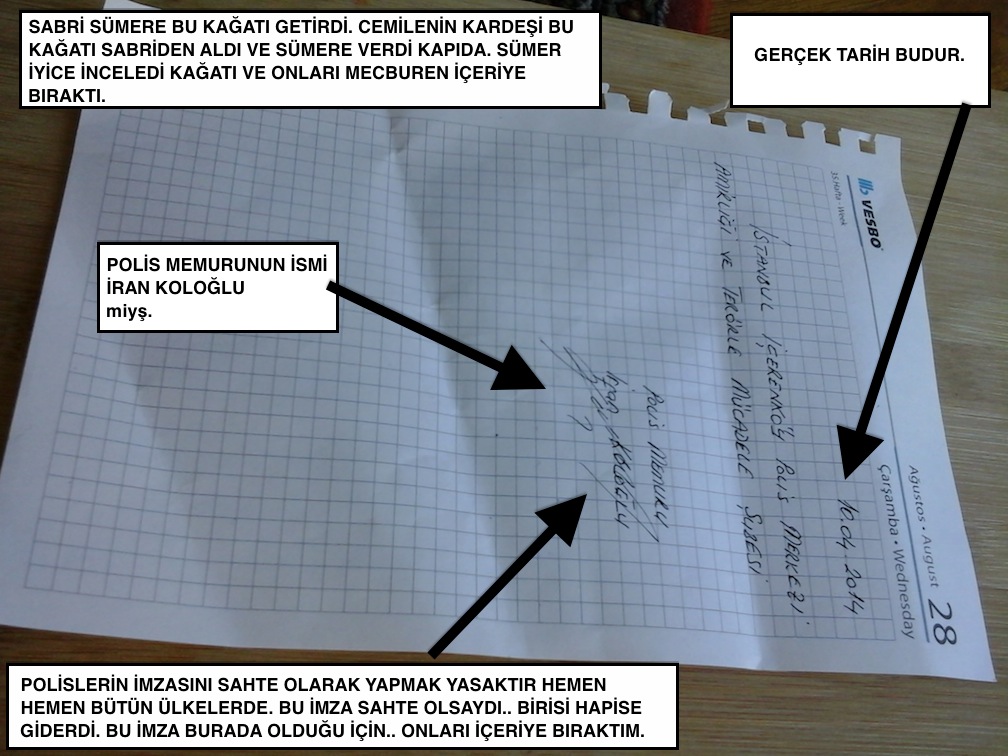 SABRİ SÜMERE BU KAĞATI GETİRDİ. CEMİLENİN KARDEŞİ BU
KAĞATI SABRİDEN ALDI VE SÜMERE VERDİ KAPIDA. SÜMER
İYİCE İNCELEDİ KAĞATI VE ONLARI MECBUREN İÇERİYE
BIRAKTI.
GERÇEK TARİH BUDUR.
35.Hafta • Week
VESBO
Ağustos • August
Çarşamba • Wednesday
28
10.04.2014
İSTANBUL İÇERENKÖY POLİS MERKEZİ
AMİRLİĞİ VE TERÖRLE MÜCADELE ŞUBESİ
POLİS MEMURU
KOLOĞLU
POLİS MEMURUNUN İSMİ
İRAN KOLOĞLU
miyş.
POLİSLERİN İMZASINI SAHTE OLARAK YAPMAK YASAKTIR HEMEN
HEMEN BÜTÜN ÜLKELERDE. BU İMZA SAHTE OLSAYDI.. BİRİSİ HAPİSE
GİDERDİ. BU İMZA BURADA OLDUĞU İÇİN.. ONLARI İÇERİYE BIRAKTIM.